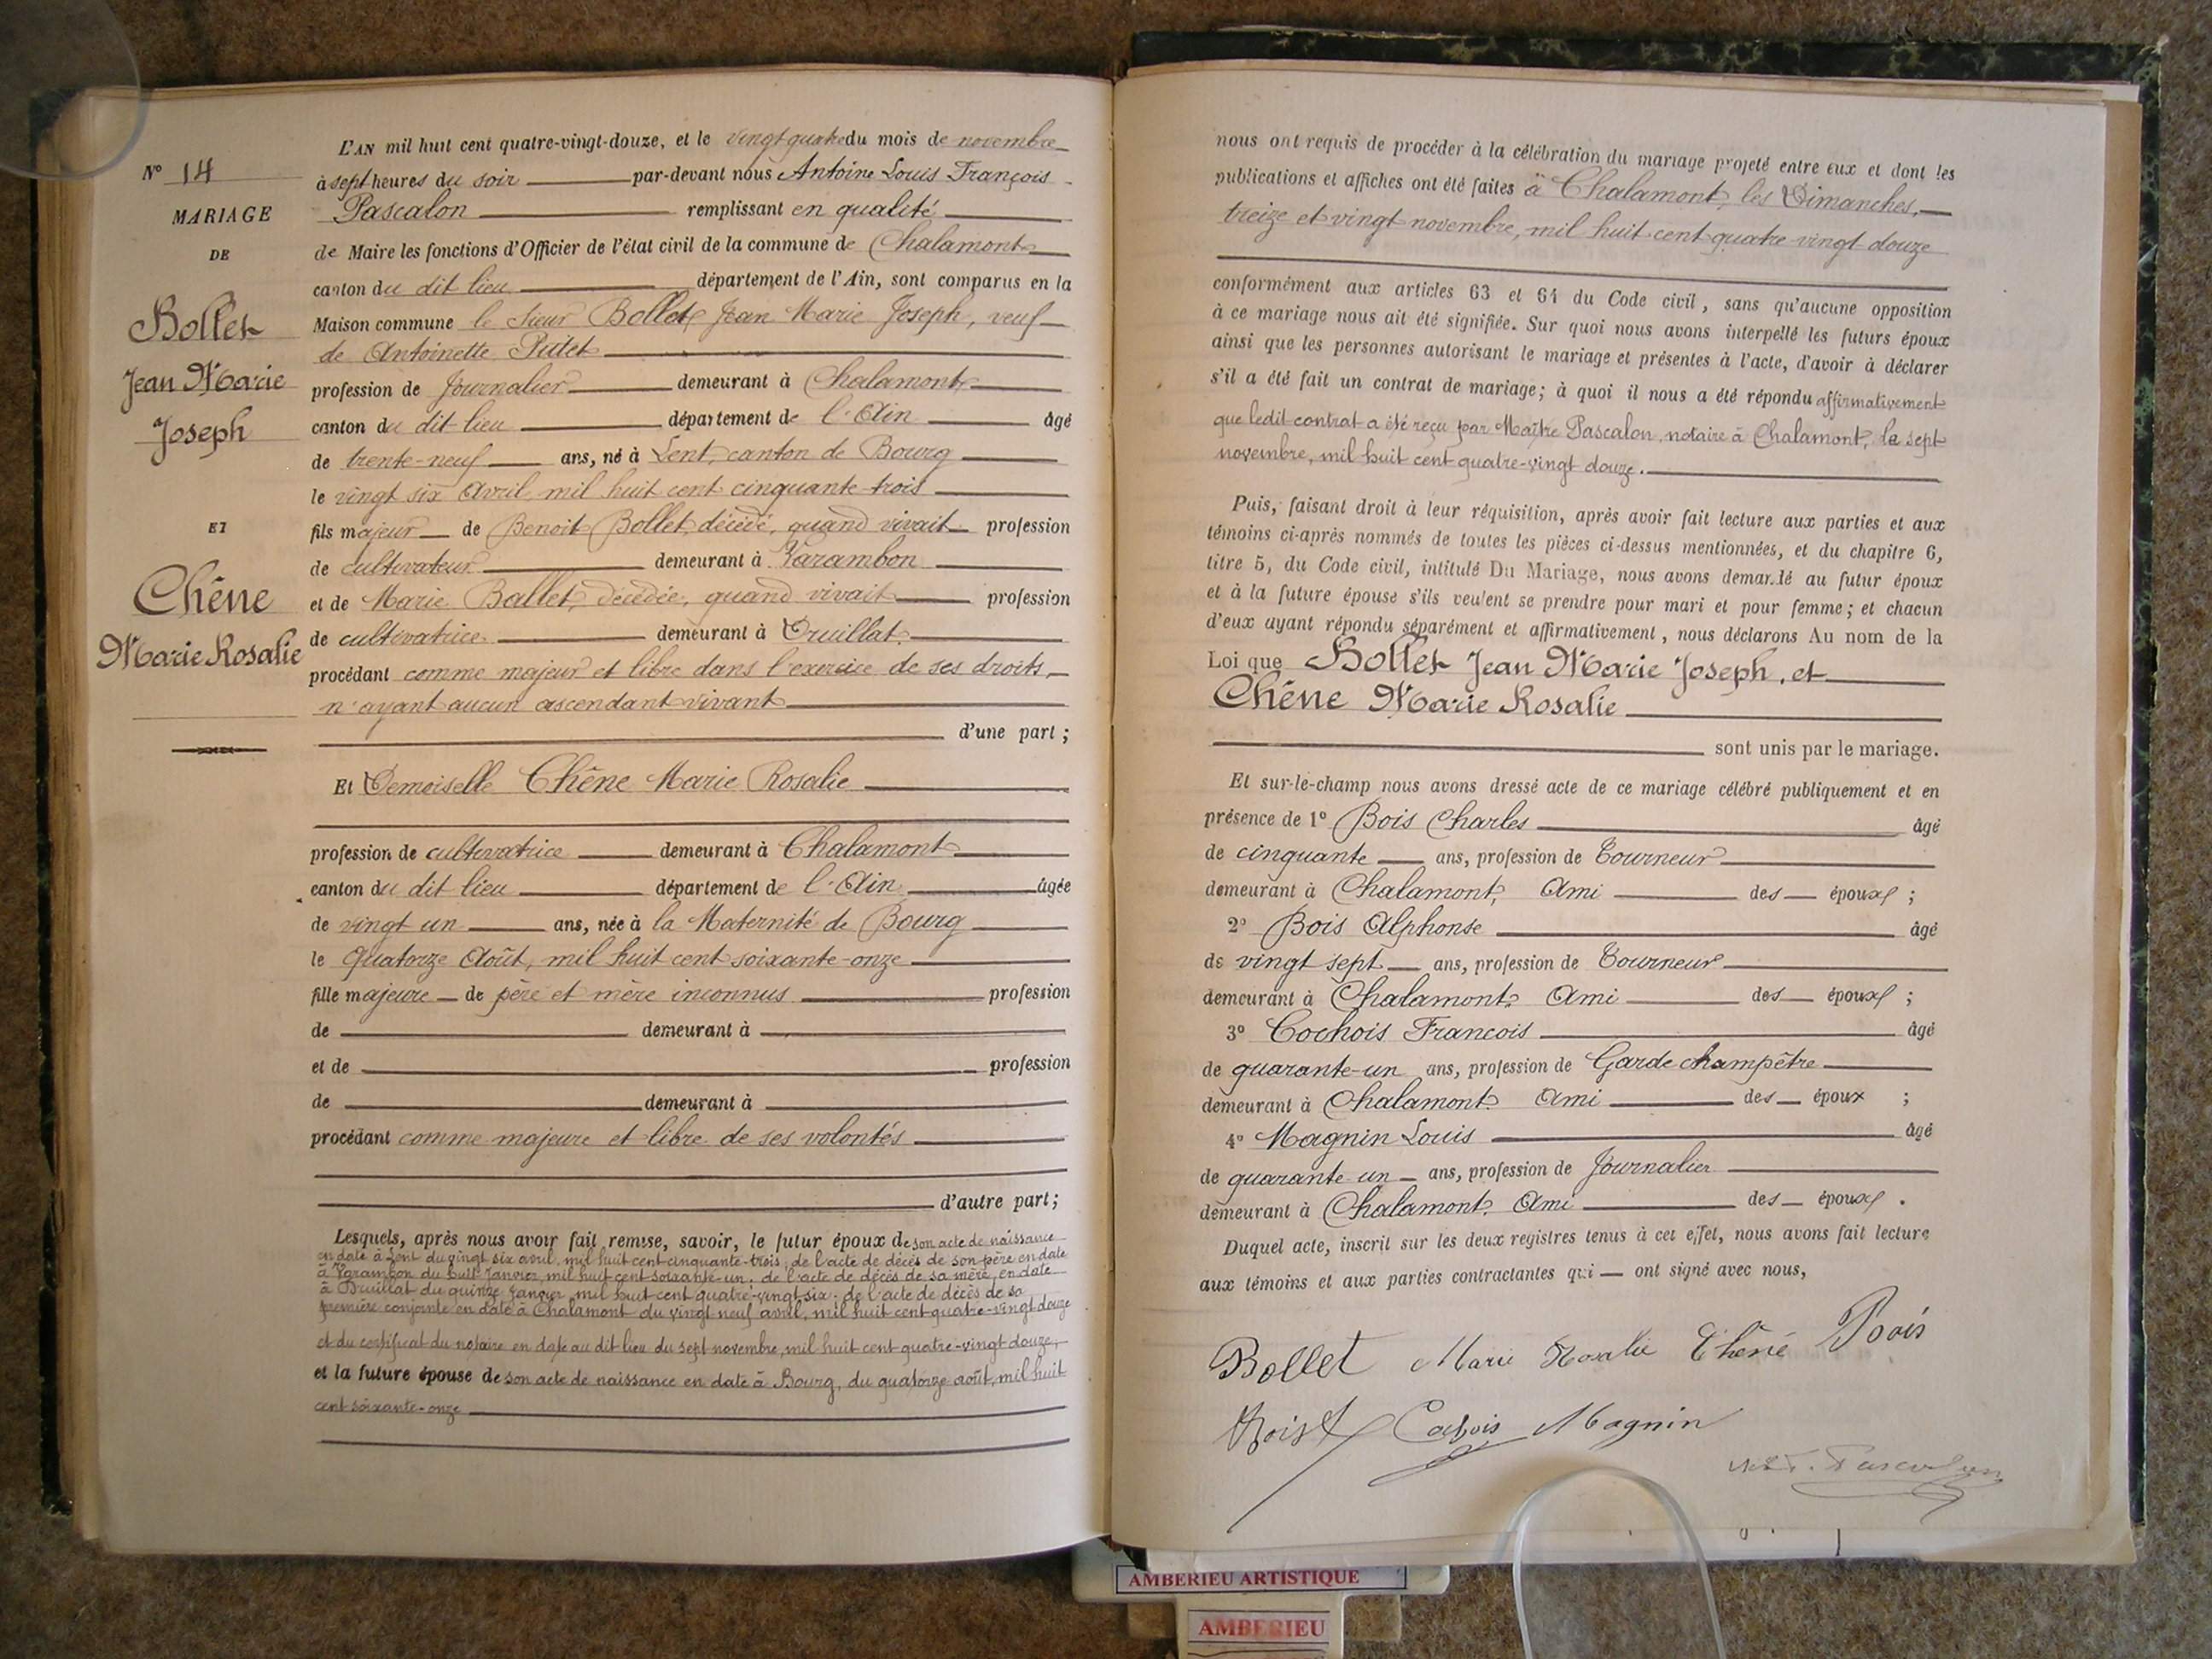 N° 14
MARIAGE
DE
Bollet
Jean Marie
Joseph
ET
Chêne
Marie Rosalie
L'AN mil huit cent quatre-vingt-douze, et le vingt quatre du mois de novembre
à sept heures du soir par-devant nous Antoine Louis François
Pascalon remplissant en qualité
de Maire les fonctions d'Officier de l'état civil de la commune de Chalamont
canton du dit lieu département de l'Ain, sont comparus en la
Maison commune le Sieur Bollet Jean Marie Joseph, veuf
de Antoinette Putet
profession de Journalier demeurant à Chalamont
canton du dit lieu département de l'Ain âgé
de trente-neuf ans, né à Lent, canton de Bourg
le vingt six Avril mil huit cent cinquante-trois
fils majeur de Benoit Bollet, décédé, quand vivait profession
de cultivateur demeurant à Varambon
et de Marie Ballet, décédée, quand vivait profession
de cultivatrice demeurant à Druillat
procédant comme majeur et libre dans l'exercice de ses droits,
n'ayant aucun ascendant vivant
d'une part ;
Et Demoiselle Chêne Marie Rosalie
profession de cultivatrice demeurant à Chalamont
canton du dit lieu département de l'Ain âgée
de vingt un ans, née à la Maternité de Bourg
le Quatorze Août, mil huit cent soixante-onze
fille majeure de père et mère inconnus profession
de demeurant à
et de profession
de demeurant à
procédant comme majeure et libre de ses volontés
d'autre part ;
Lesquels, après nous avoir fait remise, savoir, le futur époux de son acte de naissance
en date à Lent du vingt six avril, mil huit cent cinquante-trois ; de l'acte de décès de son père en date
à Varambon du huit Janvier, mil huit cent soixante-un ; de l'acte de décès de sa mère, en date
à Druillat du quinze Janvier, mil huit cent quatre-vingt-six ; de l'acte de décès de sa
première conjointe en date à Chalamont du vingt neuf avril, mil huit cent quatre-vingt douze
et du certificat du notaire en date au dit lieu du sept novembre, mil huit cent quatre-vingt douze,
et la future épouse de son acte de naissance en date à Bourg, du quatorze août, mil huit
cent soixante-onze
nous ont requis de procéder à la célébration du mariage projeté entre eux et dont les
publications et affiches ont été faites à Chalamont, les Dimanches,
treize et vingt novembre, mil huit cent quatre vingt douze
conformément aux articles 63 et 64 du Code civil, sans qu'aucune opposition
à ce mariage nous ait été signifiée. Sur quoi nous avons interpellé les futurs époux
ainsi que les personnes autorisant le mariage et présentes à l'acte, d'avoir à déclarer
s'il a été fait un contrat de mariage ; à quoi il nous a été répondu affirmativement
que ledit contrat a été reçu par Maître Pascalon, notaire à Chalamont, le sept
novembre, mil huit cent quatre-vingt douze.
Puis, faisant droit à leur réquisition, après avoir fait lecture aux parties et aux
témoins ci-après nommés de toutes les pièces ci-dessus mentionnées, et du chapitre 6,
titre 5, du Code civil, intitulé Du Mariage, nous avons demandé au futur époux
et à la future épouse s'ils veulent se prendre pour mari et pour femme ; et chacun
d'eux ayant répondu séparément et affirmativement, nous déclarons Au nom de la
Loi que Bollet Jean Marie Joseph, et
Chêne Marie Rosalie
sont unis par le mariage.
Et sur-le-champ nous avons dressé acte de ce mariage célébré publiquement et en
présence de 1° Bois Charles âgé
de cinquante ans, profession de Tourneur
demeurant à Chalamont, Ami des époux ;
2° Bois Alphonse âgé
de vingt sept ans, profession de Tourneur
demeurant à Chalamont, Ami des époux ;
3° Cochois François âgé
de quarante-un ans, profession de Garde champêtre
demeurant à Chalamont Ami des époux ;
4° Magnin Louis âgé
de quarante un ans, profession de Journalier
demeurant à Chalamont. Ami des époux .
Duquel acte, inscrit sur les deux registres tenus à cet effet, nous avons fait lecture
aux témoins et aux parties contractantes qui ont signé avec nous,
Bollet Marie Rosalie Chêne Bois
Cochois Magnin
Pascalon
AMBERIEU ARTISTIQUE
AMBERIEU